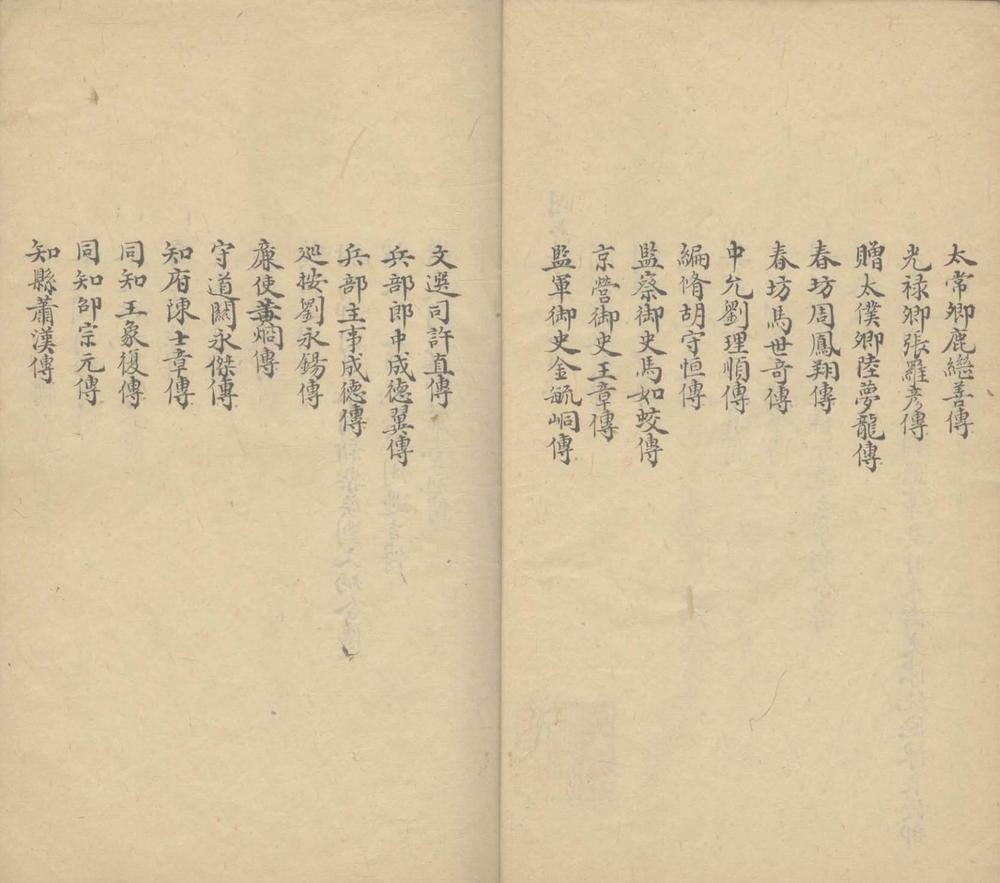 太常卿鹿繼善傳
光禄卿張羅彦傳
贈太僕卿陸夢龍傳
春坊周鳳翔傳
春坊馬世竒傳
中允劉理順傳
編脩胡守恒傳
監察御史馬如蛟傳
京營御史王章傳
監軍御史金毓峒傳
文選司許直傳
兵部郎中成德翼傳
兵部主事成德傳
廵按劉永鍚傳
廉使黄烱傳
守道關永傑傳
知府陳士章傳
同知王象復傳
同知邵宗元傳
知縣蕭漢傳